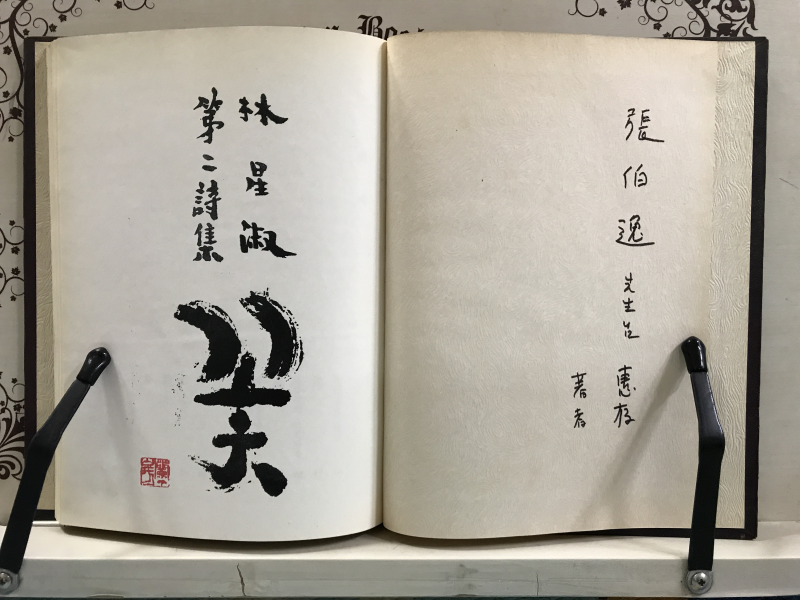 張伯逸 先生님 惠存
著者
林星淑
第二詩集
꽃